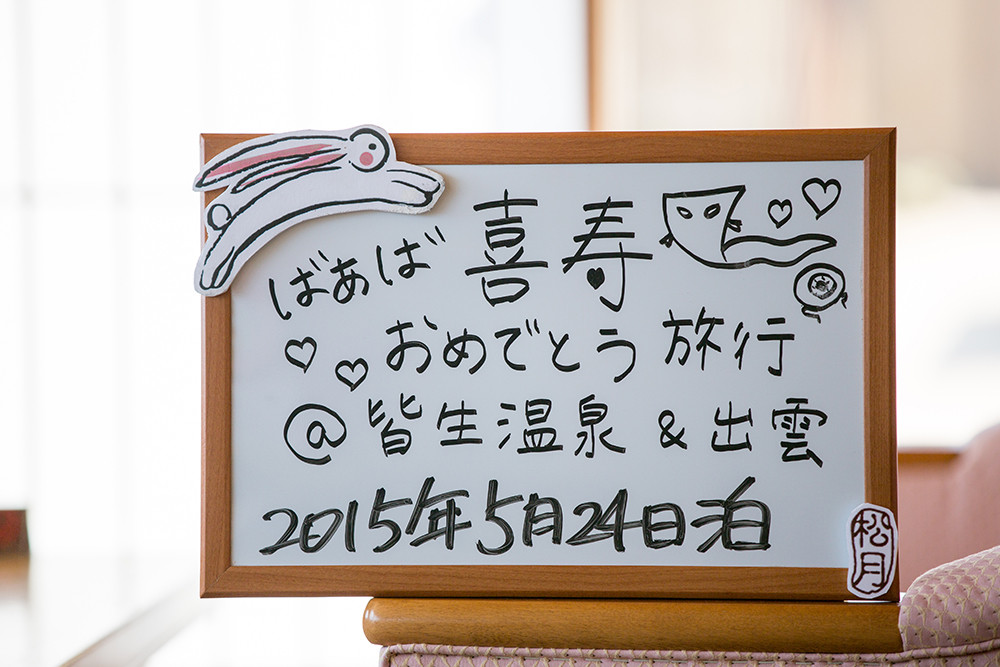 ばあば 喜寿
おめでとう 旅行
@皆生温泉 & 出雲
2015年5月24日泊
松月